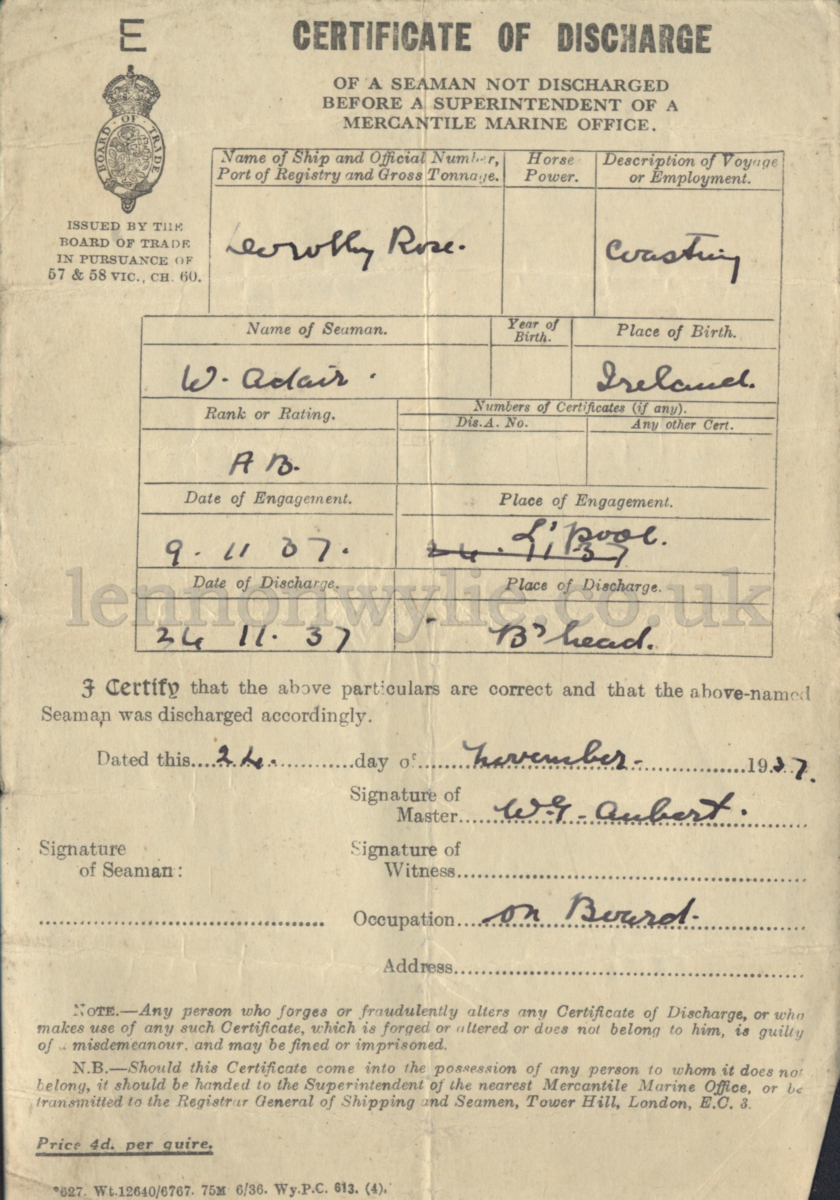 E
CERTIFICATE OF DISCHARGE
OF A SEAMAN NOT DISCHARGED
BEFORE A SUPERINTENDENT OF A
MERCANTILE MARINE OFFICE.
BOARD OF TRADE
ISSUED BY THE
BOARD OF TRADE
IN PURSUANCE OF
57 & 58 VIC., CH. 60.
Name of Ship and Official Number,
Port of Registry and Gross Tonnage.
Horse
Power.
Description of Voyage
or Employment.
Dorothy Rose.
Coasting
Name of Seaman.
Year of
Birth.
Place of Birth.
W. Adair.
Ireland.
Rank or Rating.
Numbers of Certificates (if any).
Dis.A. No.
Any other Cert.
A B.
Date of Engagement.
Place of Engagement.
9. 11 37.
L'pool.
24. 11 37
lennonwylie.co.uk
Date of Discharge.
Place of Discharge.
24 11. 37
B'head.
I Certify that the above particulars are correct and that the above-named
Seaman was discharged accordingly.
Dated this....24.............day of......November.................1937.
Signature of
Master....W.G. Aubert.
Signature
of Seaman:
Signature of
Witness
Occupation....on Board.
Address
NOTE.—Any person who forges or fraudulently alters any Certificate of Discharge, or who
makes use of any such Certificate, which is forged or altered or does not belong to him, is guilty
of a misdemeanour, and may be fined or imprisoned.
N.B.—Should this Certificate come into the possession of any person to whom it does not
belong, it should be handed to the Superintendent of the nearest Mercantile Marine Office, or be
transmitted to the Registrar General of Shipping and Seamen, Tower Hill, London, E.C. 3.
Price 4d. per quire.
627. Wt.12640/6767. 75M 6/36. Wy.P.C. 613. (4).